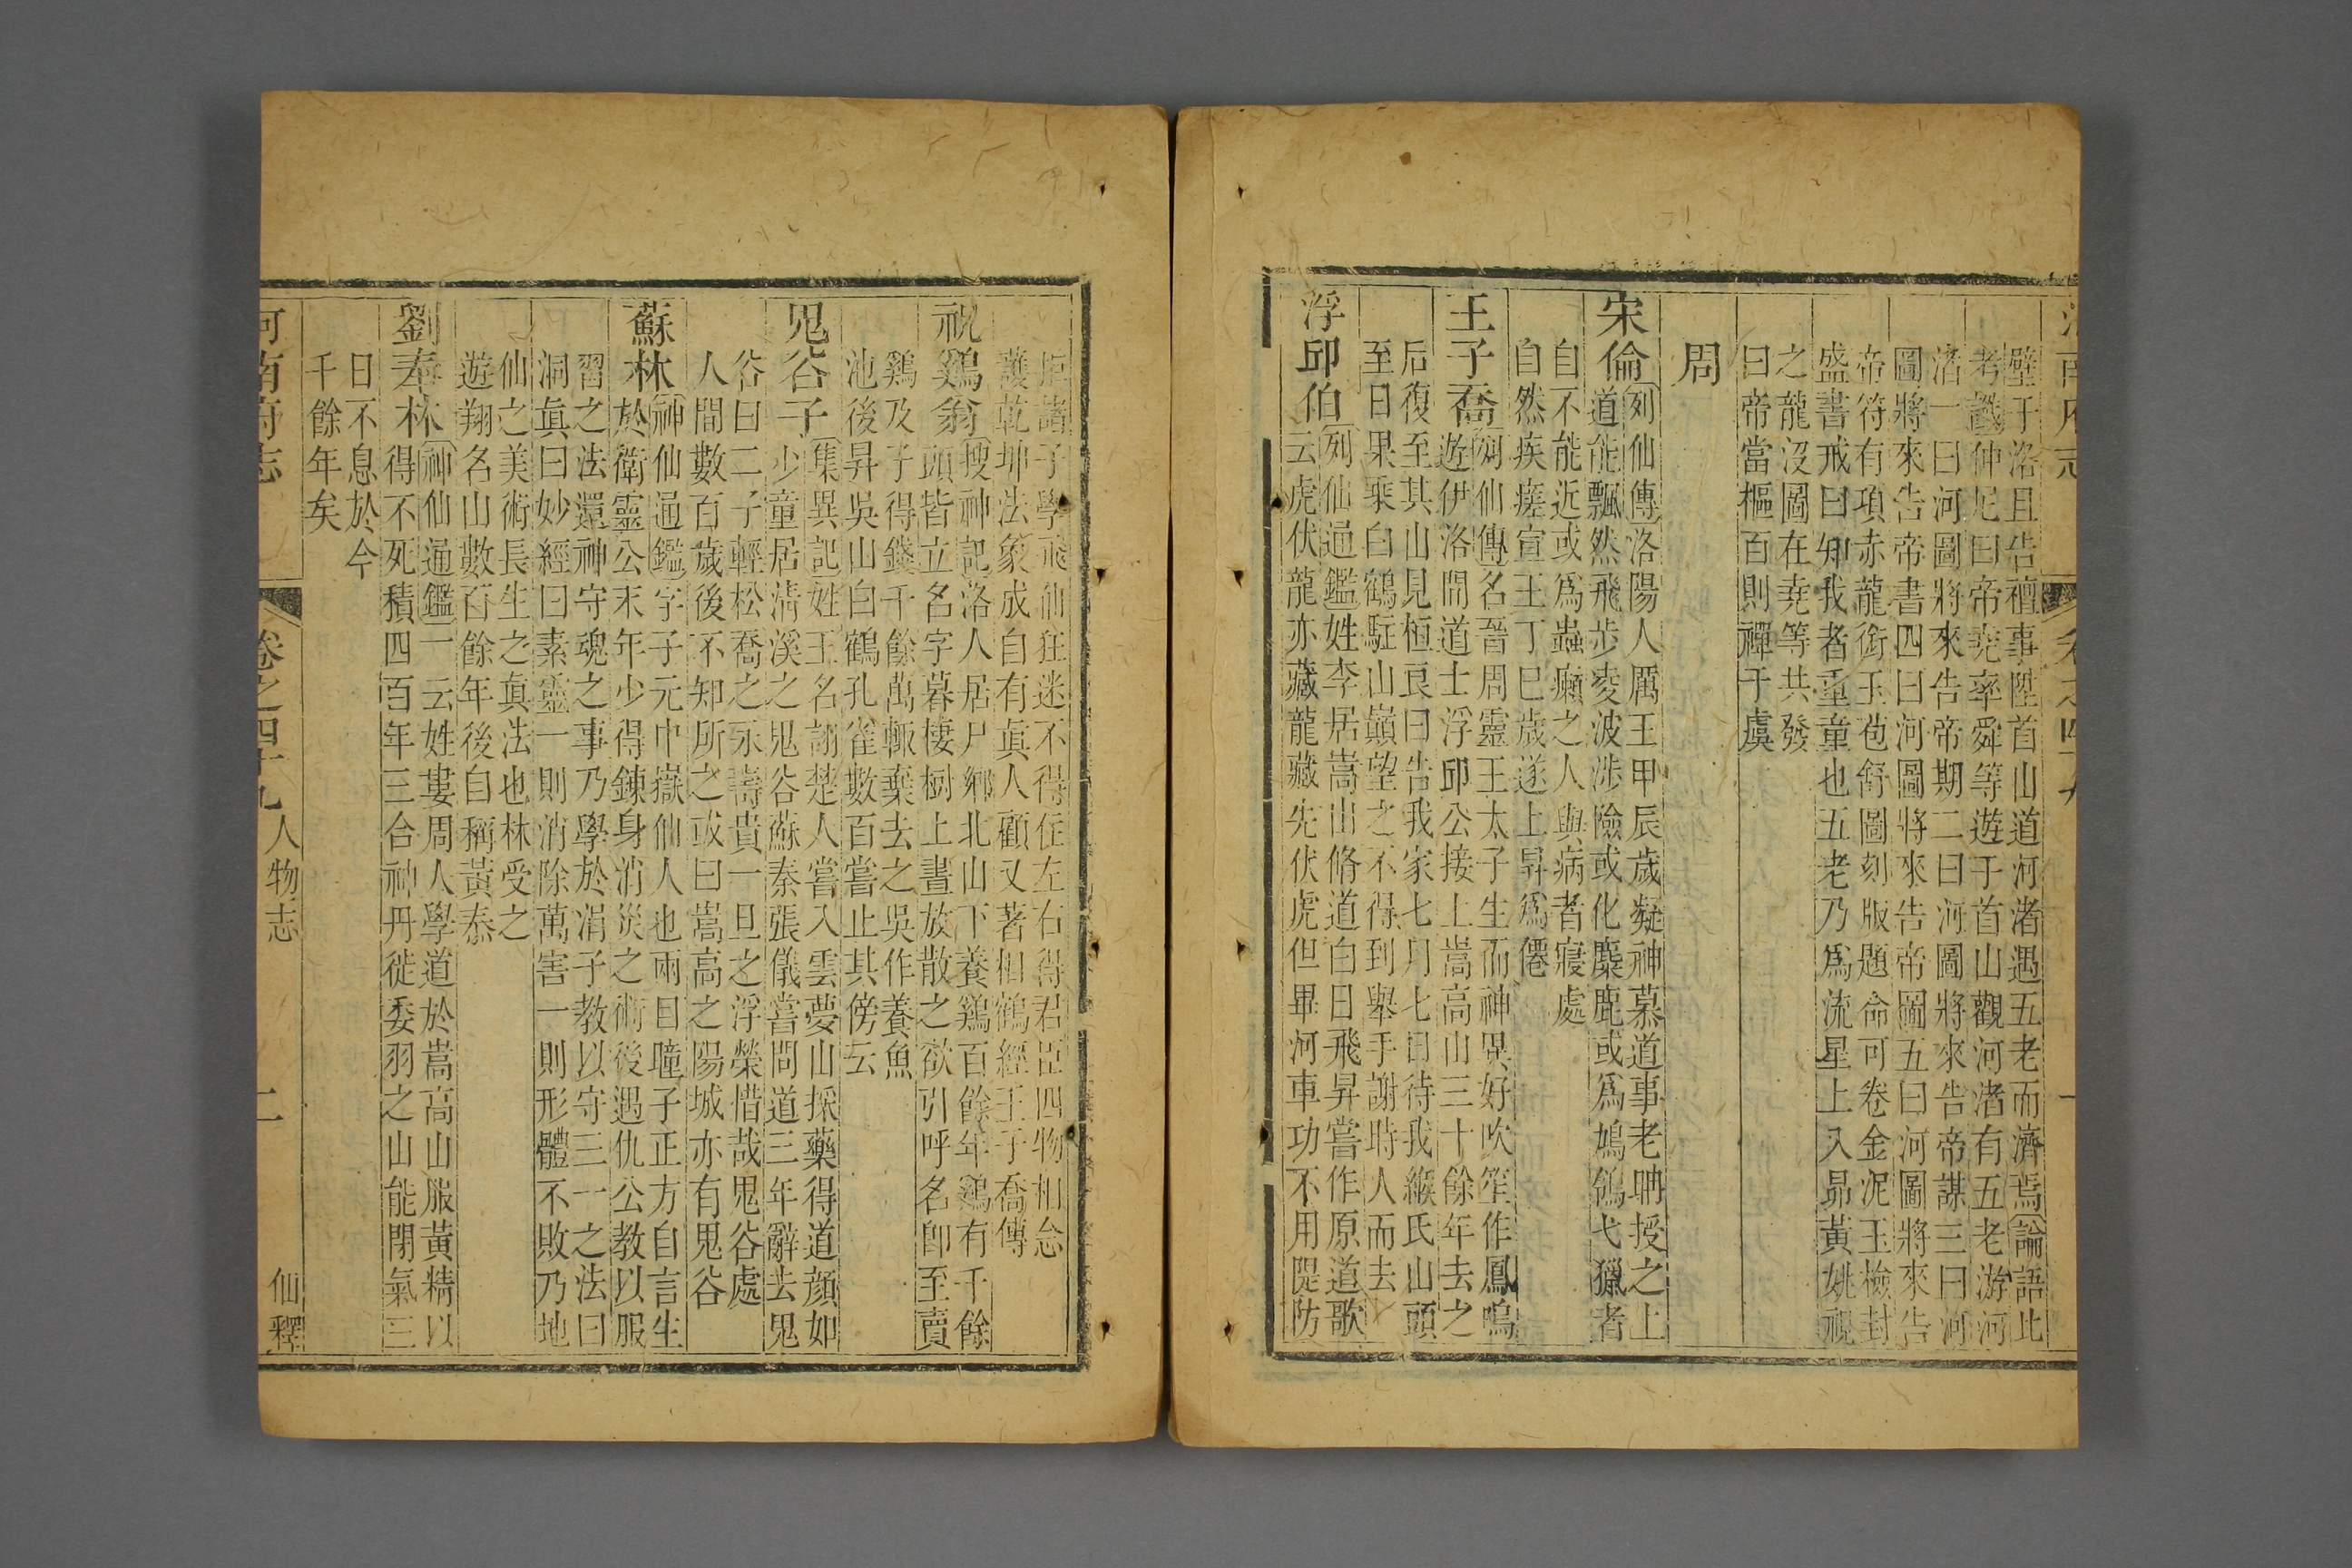 河南府志
卷之四十九
一
壁于洛且告禮事陞首山道河渚遇五老而濟焉論語比
考讖仲尼曰帝堯率舜等遊于首山觀河渚有五老游河
渚一曰河圖將來告帝期二曰河圖將來告帝謀三曰河
圖將來告帝書四曰河圖將來告帝圖五曰河圖將來告
帝符有項赤龍銜玉苞舒圖刻版題命可卷金泥玉檢封
盛書戒曰知我者重童也五老乃爲流星上入昴黃姚視
之龍沒圖在堯等共發
曰帝當樞百則禪于虞
周
宋倫
列仙傳洛陽人厲王甲辰歲凝神慕道事老聃授之上
道能飄然飛步凌波涉險或化麋鹿或爲鳩鴿弋獵者
自不能近或爲蟲癩之人與病者寢處
自然疾瘥宣王丁巳歲遂上昇爲僊
王子喬
列仙傳名晉周靈王太子生而神異好吹笙作鳳鳴
遊伊洛間道士浮邱公接上嵩高山三十餘年去之
后復至其山見桓良曰告我家七月七日待我緱氏山頭
至日果乘白鶴駐山巔望之不得到舉手謝時人而去
浮邱伯
列仙通鑑姓李居嵩山脩道白日飛昇嘗作原道歌
云虎伏龍亦藏龍藏先伏虎但畢河車功不用隄防
拒諸子學飛仙狂迷不得住左右得君臣四物相念
護乾坤法象成自有眞人顧又著相鶴經王子喬傳
祝鷄翁
搜神記洛人居尸鄉北山下養鷄百餘年鷄有千餘
頭皆立名字暮棲樹上晝放散之欲引呼名卽至賣
鷄及子得錢千餘萬輙棄去之吳作養魚
池後昇吳山白鶴孔雀數百嘗止其傍云
鬼谷子
集異記姓王名詡楚人嘗入雲夢山採藥得道顔如
少童居淸溪之鬼谷蘇秦張儀嘗問道三年辭去鬼
谷曰二子輕松喬之永壽貴一旦之浮榮惜哉鬼谷處
人間數百歲後不知所之或曰嵩高之陽城亦有鬼谷
蘇林
神仙通鑑字子元中嶽仙人也兩目瞳子正方自言生
於衛靈公末年少得鍊身消災之術後遇仇公教以服
習之法還神守魂之事乃學於涓子教以守三一之法曰
洞眞曰妙經曰素靈一則消除萬害一則形體不敗乃地
仙之美術長生之眞法也林受之
遊翔名山數百餘年後自稱黃泰
劉奉林
神仙通鑑一云姓婁周人學道於嵩高山服黃精以
得不死積四百年三合神丹徙委羽之山能閉氣三
日不息於今
千餘年矣
河南府志
卷之四十九
人物志
二
仙釋